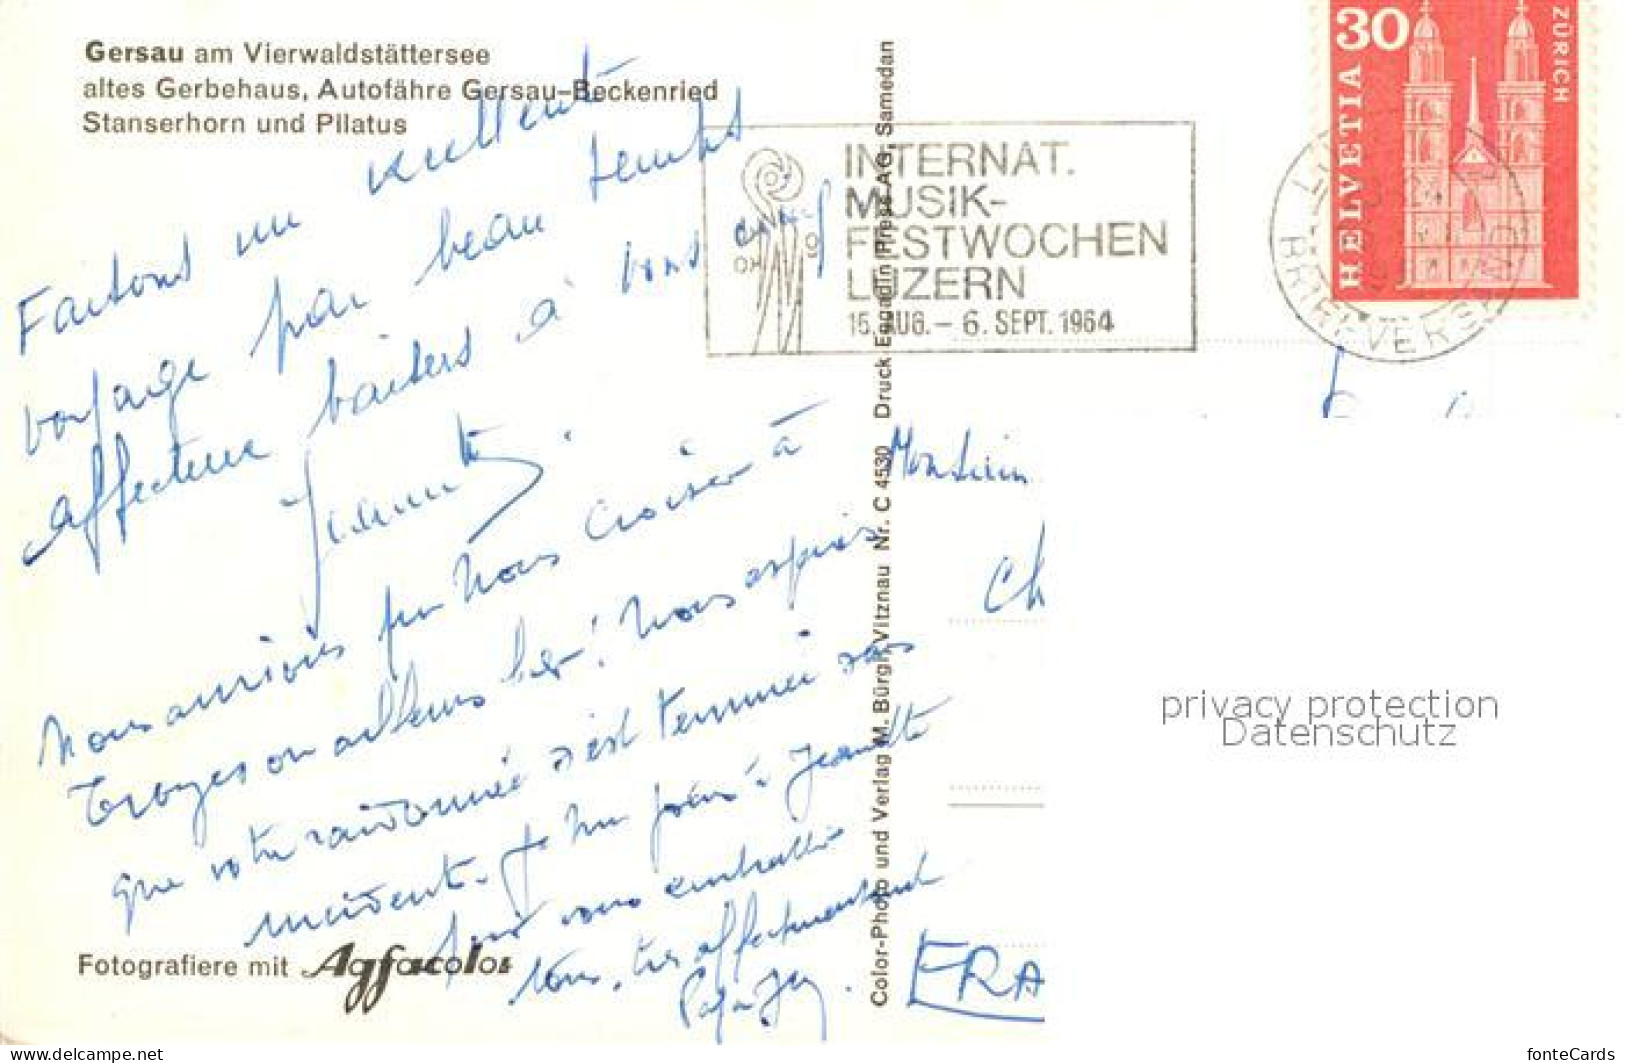 Gersau am Vierwaldstättersee
altes Gerbehaus, Autofähre Gersau-Beckenried
Stanserhorn und Pilatus
INTERNAT.
MUSIK-
FESTWOCHEN
LUZERN
15. AUG. – 6. SEPT. 1964
30
HELVETIA
ZÜRICH
BRIEFVERSAND
Faisons un excellent
voyage par beau temps
affectueux baisers à tous
Jeannette
Nous aurions pu nous croiser à
Troyes ou ailleurs ! Nous espérons
que votre randonnée s'est terminée sans
incident. Je me joins à Jeannette
pour vous embrasser
tous, très affectueusement
Papa
Fotografiere mit Agfacolor
Color-Photo und Verlag M. Bürgi, Vitznau Nr. C 4530 Druck Engadin Press AG, Samedan
Monsieur
Ch
FRA
privacy protection
Datenschutz
www.delcampe.net
fonteCards